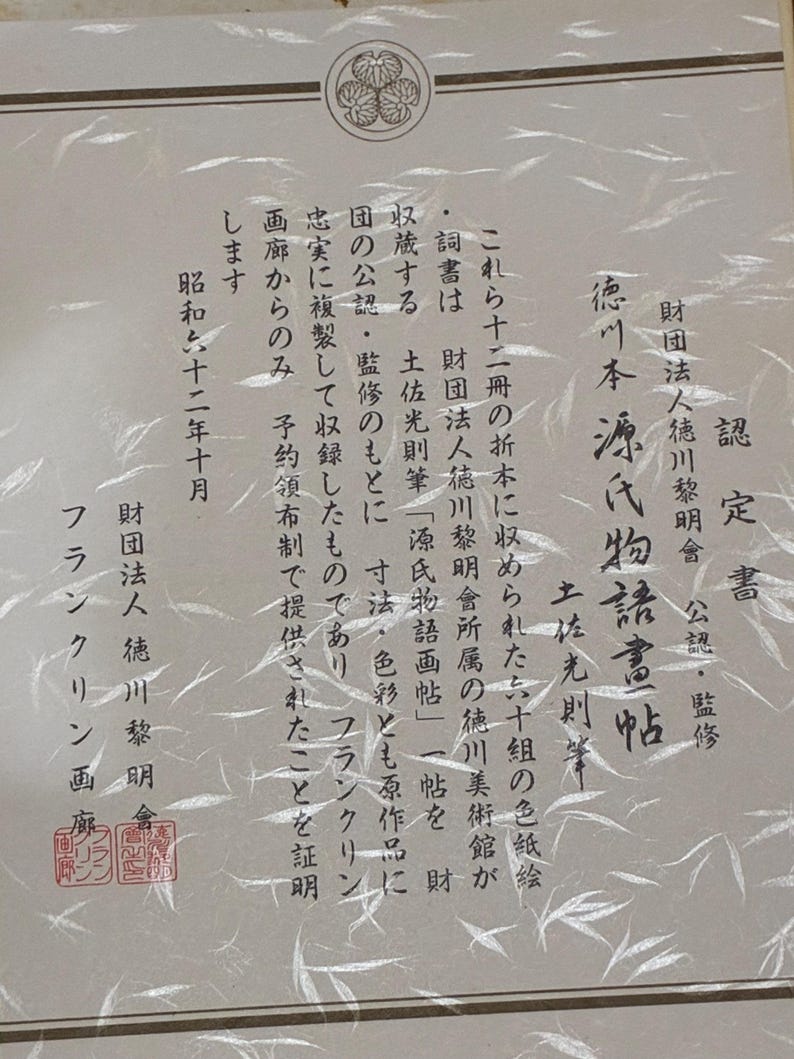 認定書
財団法人徳川黎明會 公認・監修
徳川本 源氏物語畫帖
土佐光則筆
これら十二冊の折本に収められた六十組の色紙絵
・詞書は 財団法人徳川黎明會所属の徳川美術館が
収蔵する 土佐光則筆「源氏物語画帖」一帖を 財
団の公認・監修のもとに 寸法・色彩とも原作品に
忠実に複製して収録したものであり フランクリン
画廊からのみ 予約領布制で提供されたことを証明
します
昭和六十二年十月
財団法人 徳川黎明會
フランクリン画廊
フランクリン画廊